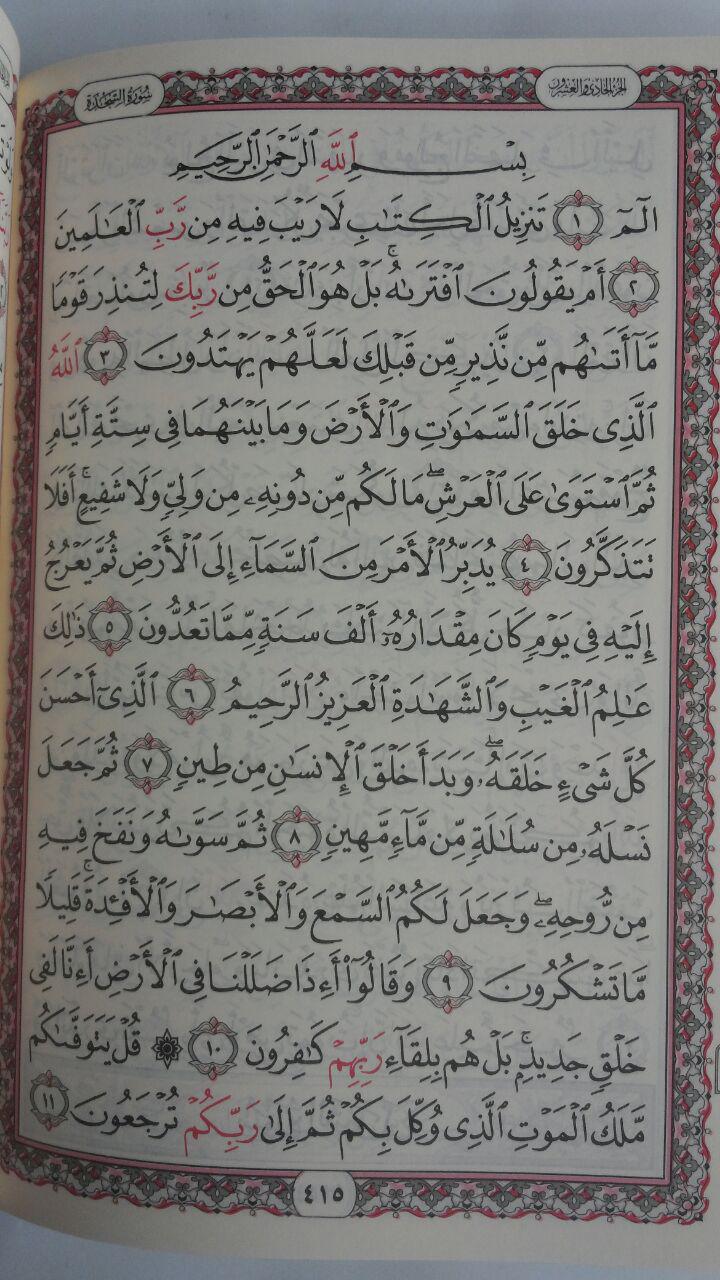 سُورَةُ السَّجْدَةِ
الجُزْءُ الحَادِي وَالعِشْرُونَ
بِسْمِ ٱللَّهِ ٱلرَّحْمَٰنِ ٱلرَّحِيمِ
الٓمٓ ١ تَنزِيلُ ٱلْكِتَٰبِ لَا رَيْبَ فِيهِ مِن رَّبِّ ٱلْعَٰلَمِينَ
٢ أَمْ يَقُولُونَ ٱفْتَرَىٰهُۚ بَلْ هُوَ ٱلْحَقُّ مِن رَّبِّكَ لِتُنذِرَ قَوْمًا
مَّآ أَتَىٰهُم مِّن نَّذِيرٍ مِّن قَبْلِكَ لَعَلَّهُمْ يَهْتَدُونَ ٣ ٱللَّهُ
ٱلَّذِى خَلَقَ ٱلسَّمَٰوَٰتِ وَٱلْأَرْضَ وَمَا بَيْنَهُمَا فِى سِتَّةِ أَيَّامٍ
ثُمَّ ٱسْتَوَىٰ عَلَى ٱلْعَرْشِۖ مَا لَكُم مِّن دُونِهِۦ مِن وَلِىٍّ وَلَا شَفِيعٍۚ أَفَلَا
تَتَذَكَّرُونَ ٤ يُدَبِّرُ ٱلْأَمْرَ مِنَ ٱلسَّمَآءِ إِلَى ٱلْأَرْضِ ثُمَّ يَعْرُجُ
إِلَيْهِ فِى يَوْمٍ كَانَ مِقْدَارُهُۥٓ أَلْفَ سَنَةٍ مِّمَّا تَعُدُّونَ ٥ ذَٰلِكَ
عَٰلِمُ ٱلْغَيْبِ وَٱلشَّهَٰدَةِ ٱلْعَزِيزُ ٱلرَّحِيمُ ٦ ٱلَّذِىٓ أَحْسَنَ
كُلَّ شَىْءٍ خَلَقَهُۥۖ وَبَدَأَ خَلْقَ ٱلْإِنسَٰنِ مِن طِينٍ ٧ ثُمَّ جَعَلَ
نَسْلَهُۥ مِن سُلَٰلَةٍ مِّن مَّآءٍ مَّهِينٍ ٨ ثُمَّ سَوَّىٰهُ وَنَفَخَ فِيهِ
مِن رُّوحِهِۦۖ وَجَعَلَ لَكُمُ ٱلسَّمْعَ وَٱلْأَبْصَٰرَ وَٱلْأَفْـِٔدَةَۚ قَلِيلًا
مَّا تَشْكُرُونَ ٩ وَقَالُوٓا۟ أَءِذَا ضَلَلْنَا فِى ٱلْأَرْضِ أَءِنَّا لَفِى
خَلْقٍ جَدِيدٍۭۚ بَلْ هُم بِلِقَآءِ رَبِّهِمْ كَٰفِرُونَ ١٠ ۞ قُلْ يَتَوَفَّىٰكُم
مَّلَكُ ٱلْمَوْتِ ٱلَّذِى وُكِّلَ بِكُمْ ثُمَّ إِلَىٰ رَبِّكُمْ تُرْجَعُونَ ١١
٤١٥